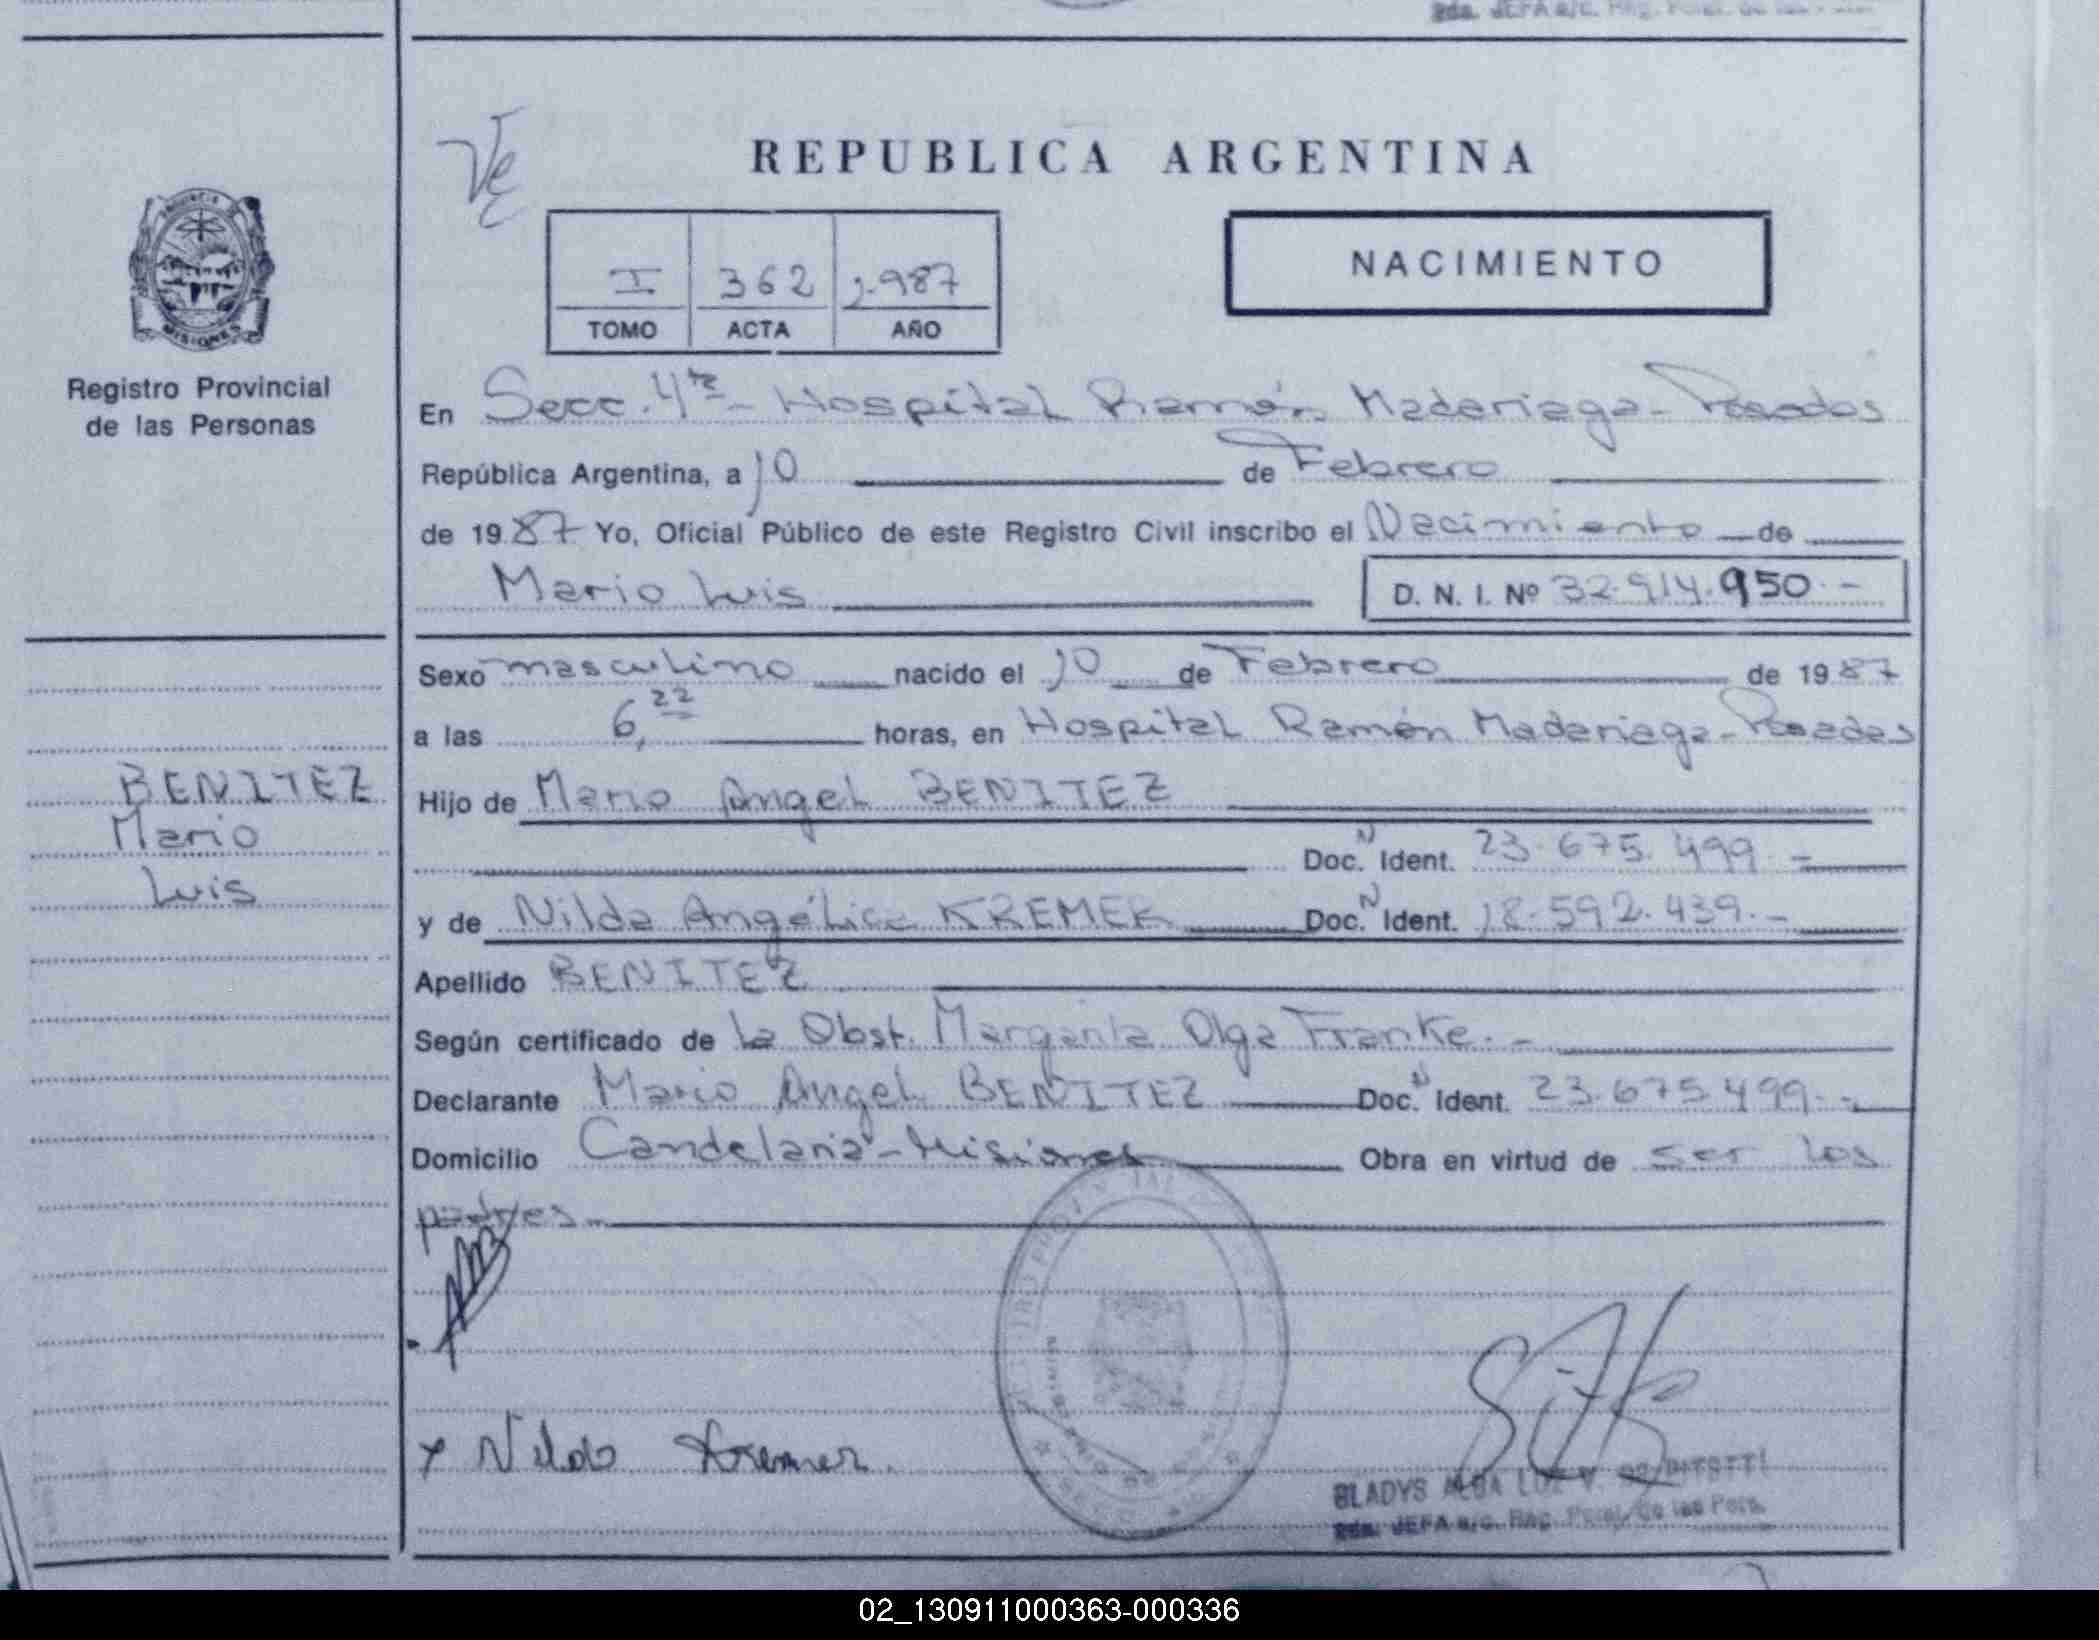 2da. JEFA a/c. Reg. Pcial. de las
REPUBLICA ARGENTINA
I 362 1.987
TOMO ACTA AÑO
NACIMIENTO
PROVINCIA DE
MISIONES
Registro Provincial
de las Personas
En Secc. 4ta - Hospital Ramón Madariaga - Posadas
República Argentina, a 10 de Febrero
de 1987 Yo, Oficial Público de este Registro Civil inscribo el Nacimiento de
Mario Luis D. N. I. Nº 32.914.950.-
Sexo masculino nacido el 10 de Febrero de 1987
a las 6,22 horas, en Hospital Ramón Madariaga - Posadas
BENITEZ
Mario
Luis
Hijo de Mario Angel BENITEZ
Doc. N Ident. 23.675.499.-
y de Nilda Angélica KREMER Doc. N Ident. 18.592.439.-
Apellido BENITEZ
Según certificado de la Obst. Margarita Olga Franke.-
Declarante Mario Angel BENITEZ Doc. N Ident. 23.675.499.-
Domicilio Candelaria - Misiones Obra en virtud de ser los
padres.-
x Nilda Kremer
GLADYS ALBA LUZ V. DE
2da. JEFA a/c. Reg. Pcial. de las Pers.
02_130911000363-000336